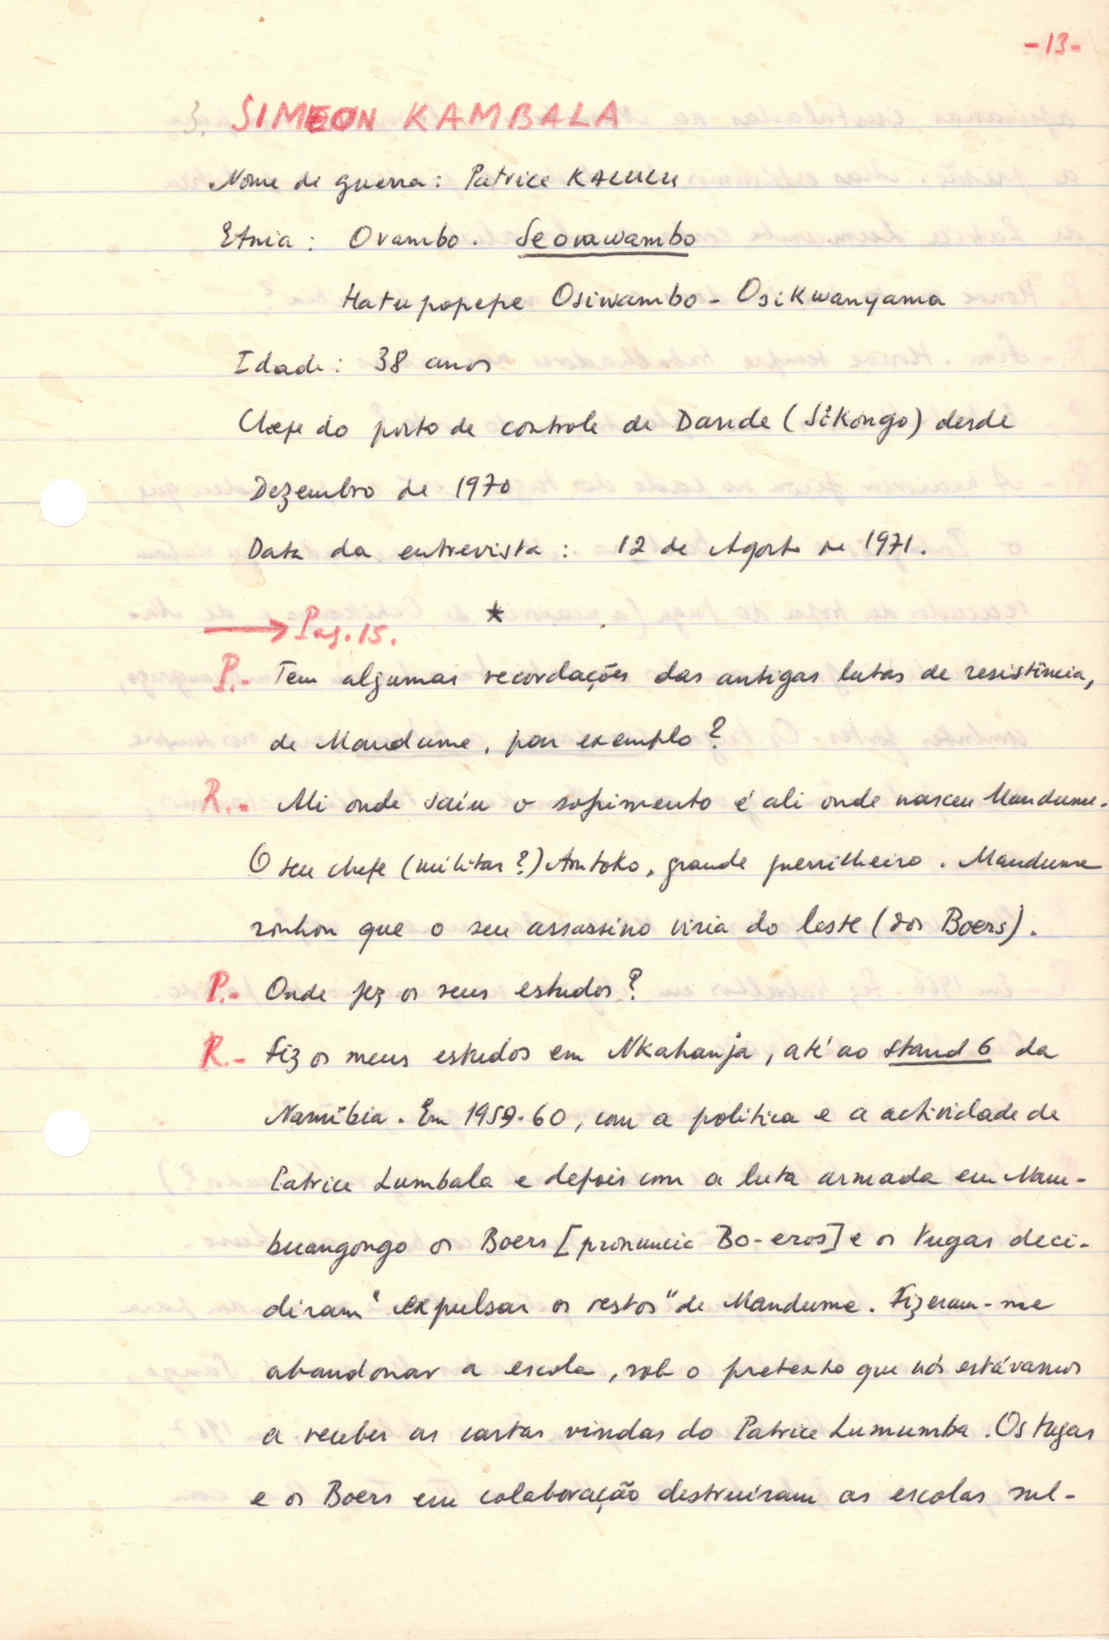 -13-
3. SIMEON KAMBALA
Nome de guerra: Patrice KALULU
Etnia: Ovambo. Seovawambo
Hatupopepe Osiwambo - Osikwanyama
Idade: 38 anos
Chefe do posto de controle de Dande (Sikongo) desde
Dezembro de 1970
Data da entrevista: 12 de Agosto de 1971.
*
→ Pag. 15.
P.- Tem algumas recordações das antigas lutas de resistência,
de Mandume, por exemplo?
R.- Ali onde saíu o sofrimento é ali onde nasceu Mandume.
O seu chefe (militar?) Amtoko, grande guerrilheiro. Mandume
sonhou que o seu assassino viria do leste (dos Boers).
P.- Onde fez os seus estudos?
R.- Fiz os meus estudos em Nkahanja, até ao Stand 6 da
Namíbia. Em 1959-60, com a política e a actividade de
Patrice Lumbala e depois com a luta armada em Nam-
buangongo os Boers [pronuncia Bo-eros] e os Tugas deci-
diram "expulsar os restos" de Mandume. Fizeram-me
abandonar a escola, sob o pretexto que nós estávamos
a receber as cartas vindas do Patrice Lumumba. Os tugas
e os Boers em colaboração destruíram as escolas sul-